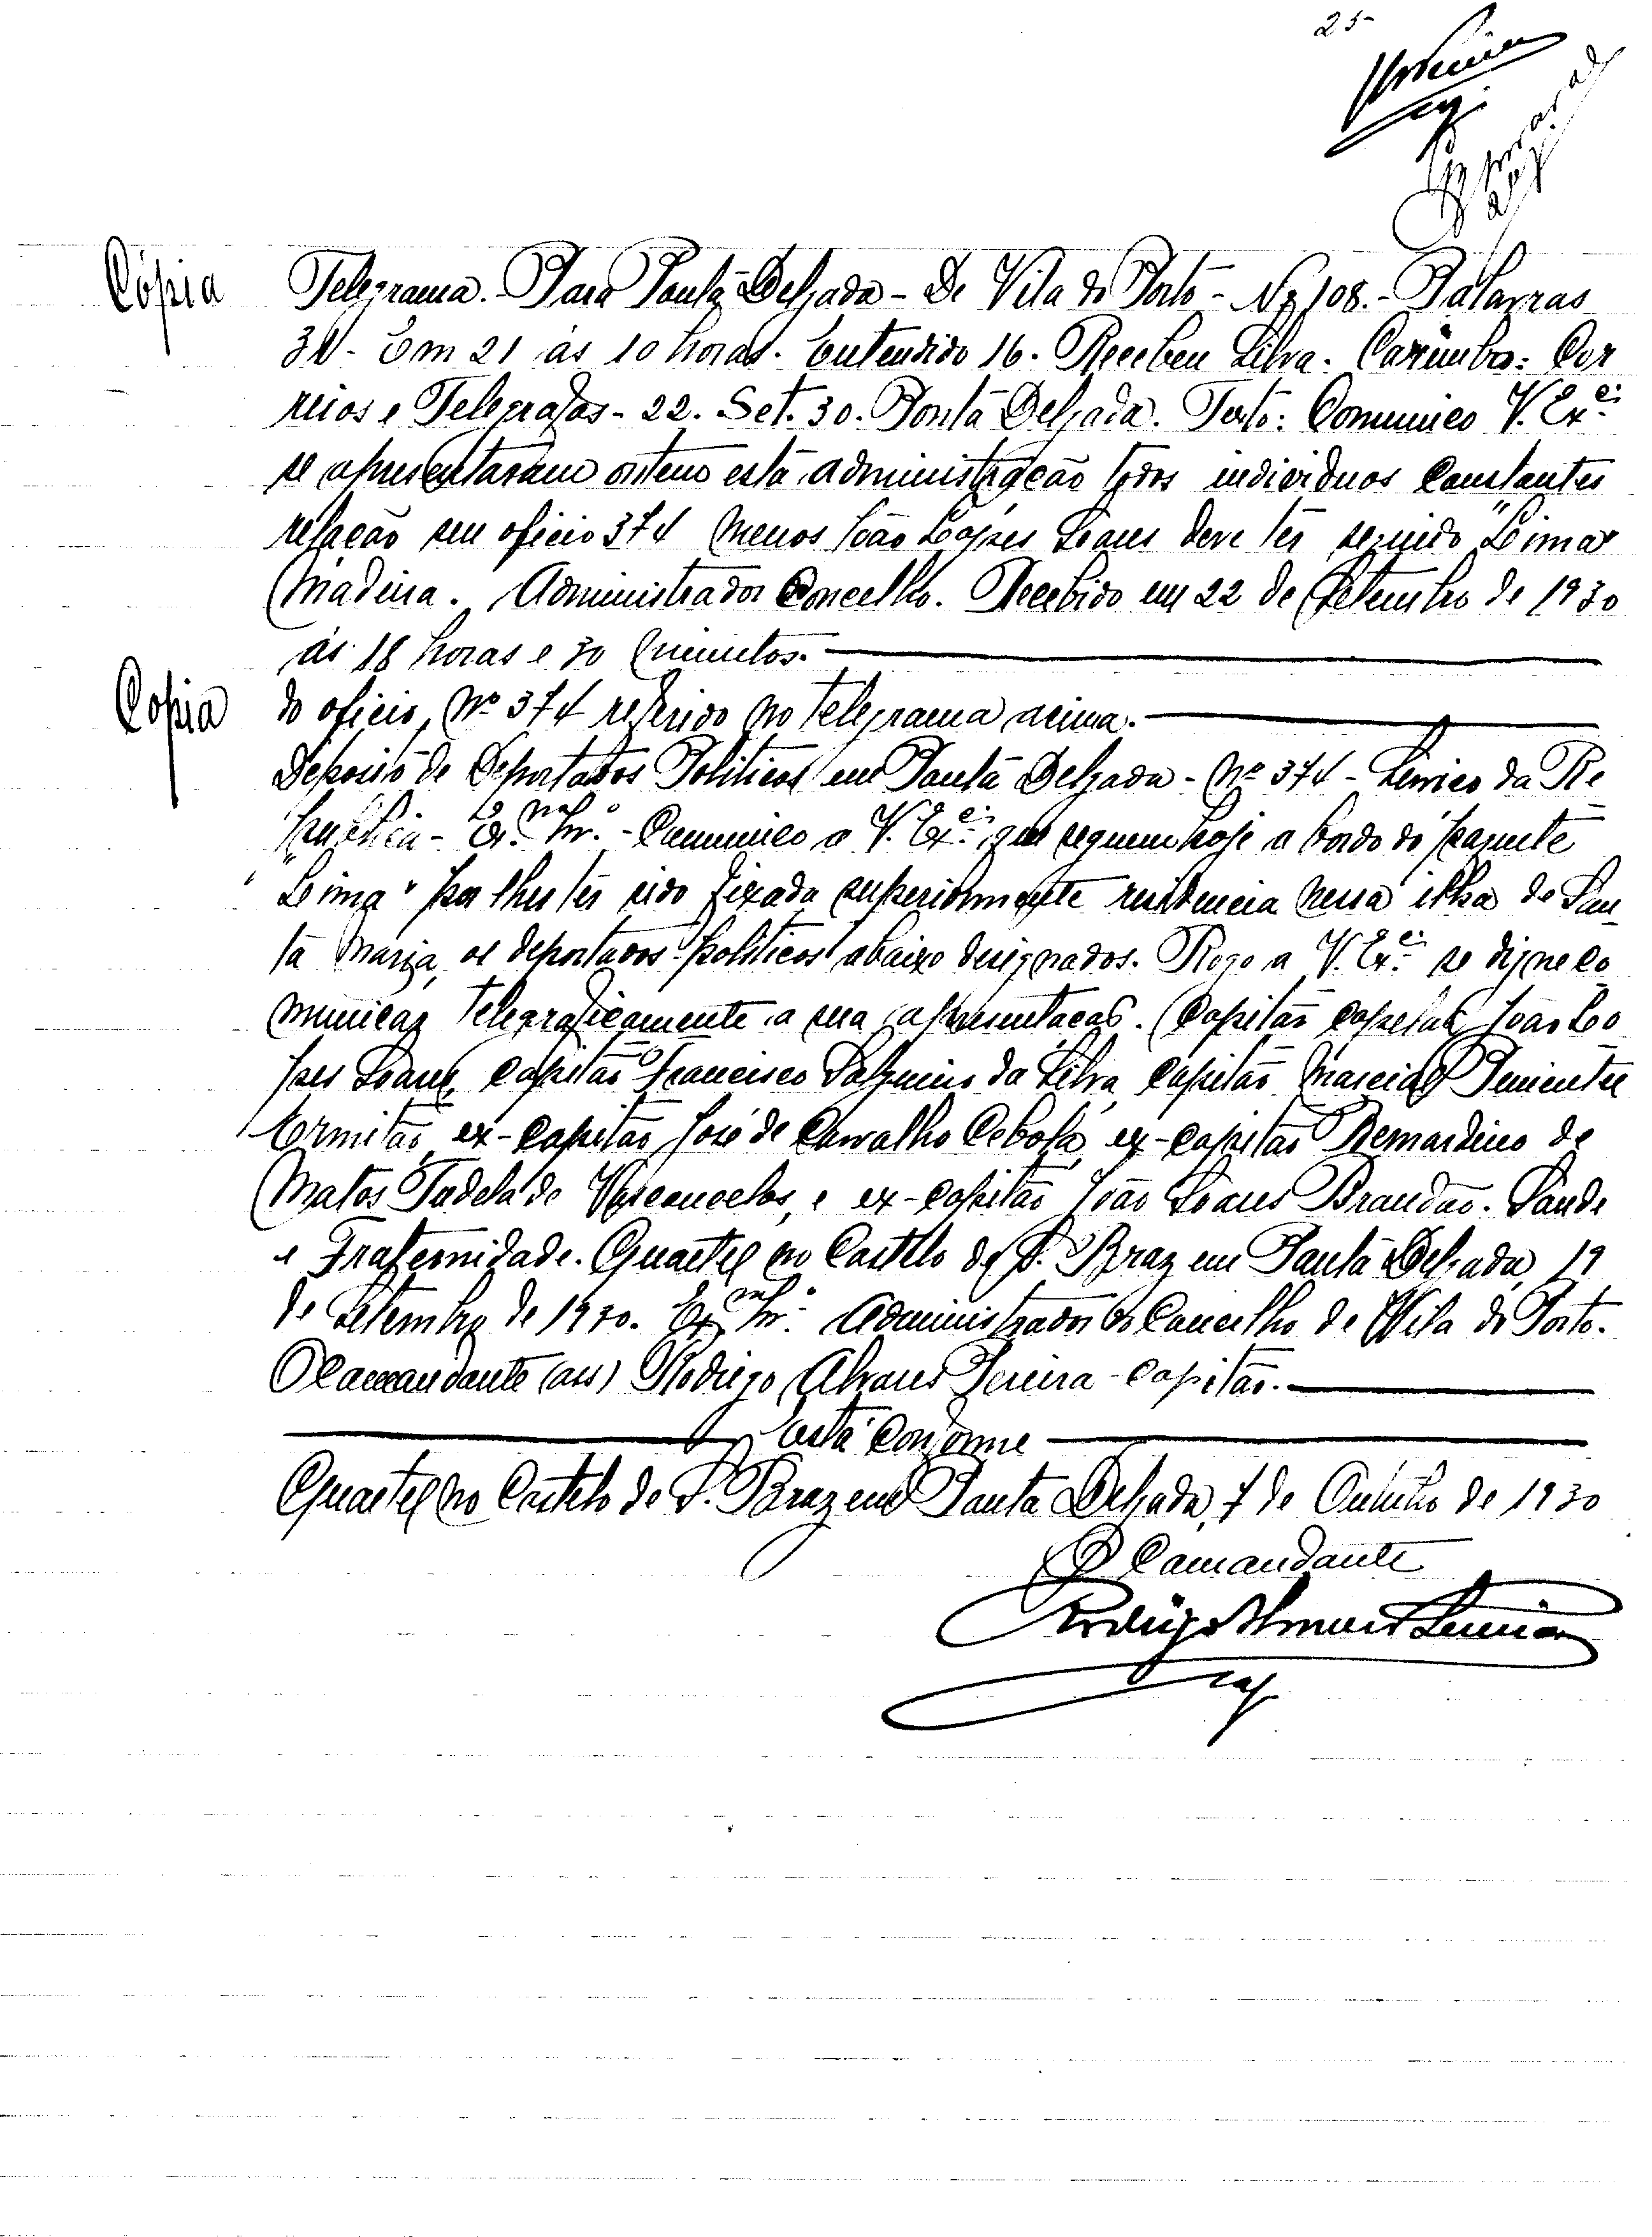 25-
Cópia
Telegrama. Para Ponta Delgada - De Vila do Porto - Nº 108. - Palavras
31 - Em 21 ás 10 horas. Entendido 16. Recebeu Silva. Carimbo: Cor
reios e Telegrafos - 22. Set. 30. Ponta Delgada. Texto: Comunico V. Exª
se apresentaram ontem esta administração todos individuos constantes
relação seu oficio 374 menos João Lopes Soares deve ter seguido "Lima"
Madeira. Administrador Concelho. Recebido em 22 de Setembro de 1930
ás 18 horas e 30 minutos.
Copia
do oficio, Nº 374 referido no telegrama acima.
Deposito de Deportados Politicos em Ponta Delgada - Nº 374 - Serviço da Re
publica - Exmº Snr. - Comunico a V. Exª que seguem hoje a bordo do paquete
"Lima" por lhes ter sido fixada superiormente residencia nessa ilha de San
ta Maria, os deportados politicos abaixo designados. Rogo a V. Exª se digne co
municar telegraficamente a sua apresentação. Capitão capelão João Lo
pes Soares, capitão Francisco da Silva, capitão Marcial Pimentel
Ermitão, ex-capitão José de Carvalho Cebola, ex-capitão Bernardino de
Matos Tudela de Vasconcelos, e ex-capitão João Soares Brandão. Saude
e Fraternidade. Quartel no Castelo de S. Braz em Ponta Delgada, 19
de Setembro de 1930. Exmº Snr. Administrador do Concelho de Vila do Porto.
O Comandante (ass) Rodrigo Alvares Pereira - capitão.
Está conforme
Quartel no Castelo de S. Braz em Ponta Delgada, 7 de Outubro de 1930
O Comandante
Rodrigo Alvares Pereira
Cap.